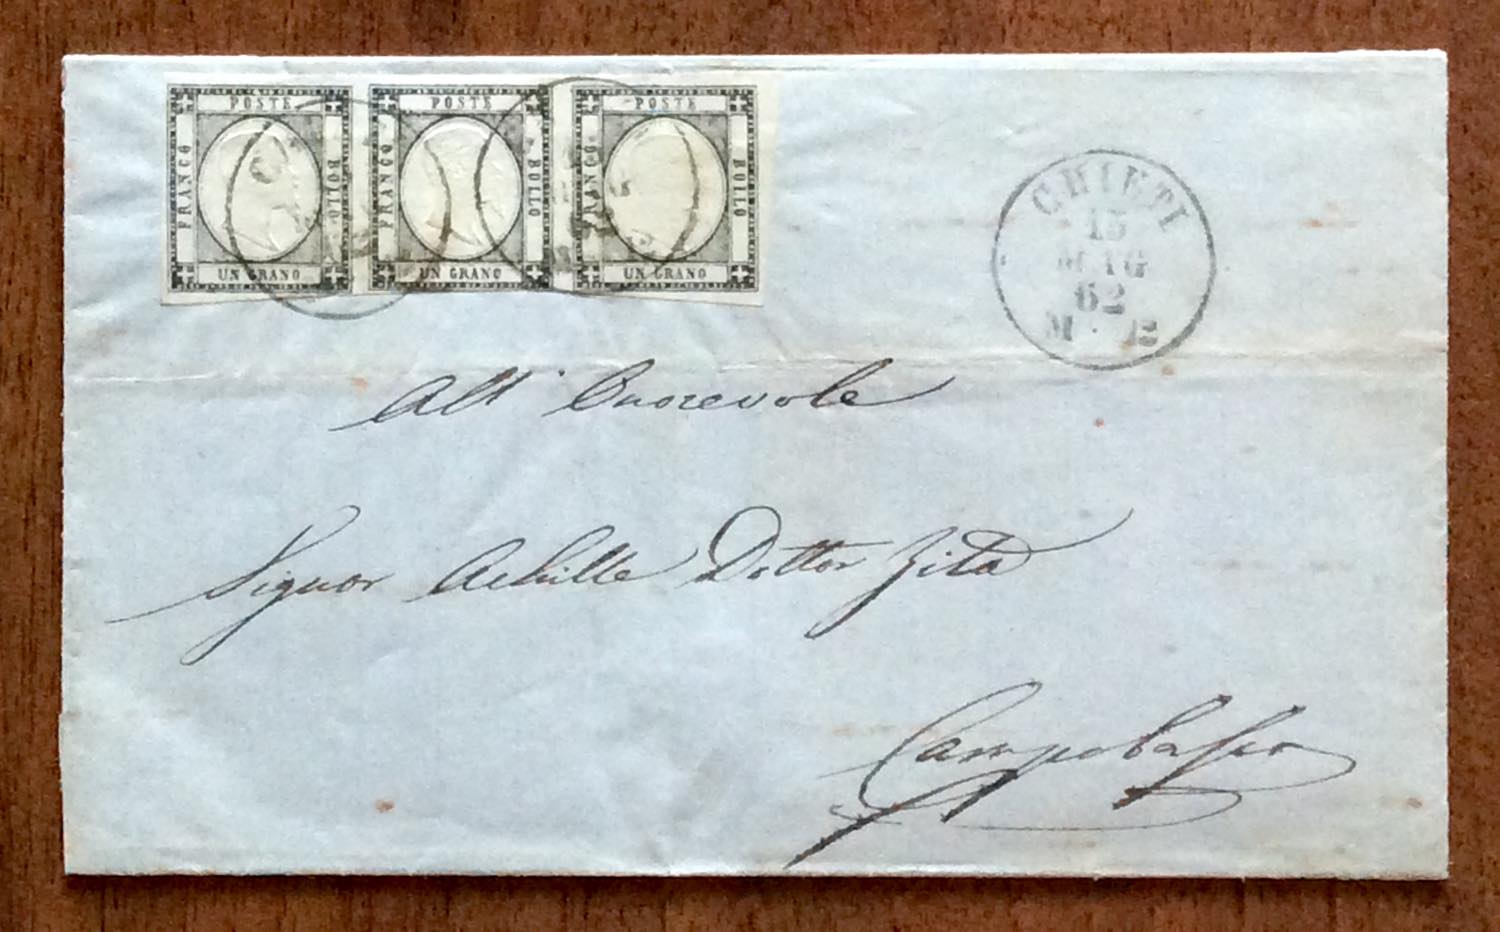 POSTE
FRANCO
BOLLO
UN GRANO
POSTE
FRANCO
BOLLO
UN GRANO
POSTE
FRANCO
BOLLO
UN GRANO
CHIETI
15
MAG
62
M · B
All' Onorevole
Signor Achille Dottor Zita
Campobasso